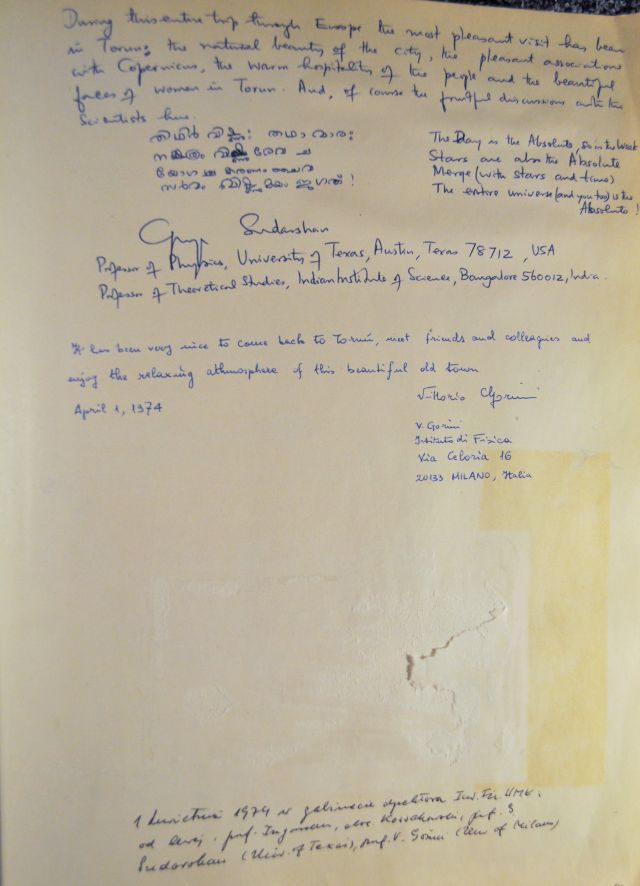 During this entire trip through Europe the most pleasant visit has been
in Torun; the natural beauty of the city, the pleasant associations
with Copernicus, the warm hospitality of the people and the beautiful
faces of women in Torun. And, of course the fruitful discussions with the
Scientists here.
തിഥിർ വിഷ്ണു: തഥാ വാര:
നക്ഷത്രം വിഷ്ണുരേവ ച
യോഗശ്ച കരണം ചൈവ
സർവം വിഷ്ണുമയം ജഗത്!
The Day is the Absolute, so is the Week
Stars are also the Absolute
Merge (with stars and time)
The entire universe (and you too) is the
Absolute!
Sudarshan
Professor of Physics, University of Texas, Austin, Texas 78712, USA
Professor of Theoretical Studies, Indian Institute of Science, Bangalore 560012, India.
It has been very nice to come back to Toruń, meet friends and colleagues and
enjoy the relaxing athmosphere of this beautiful old town
April 1, 1974
Vittorio Gorini
V. Gorini
Istituto di Fisica
Via Celoria 16
20133 MILANO, Italia
1 kwietnia 1974 w gabinecie dyrektora Inst. Fiz. UMK:
od lewej: prof. Ingarden, doc. Kossakowski, prof. S
Sudarshan (Univ. of Texas), prof. V. Gorini (Univ of Milano)